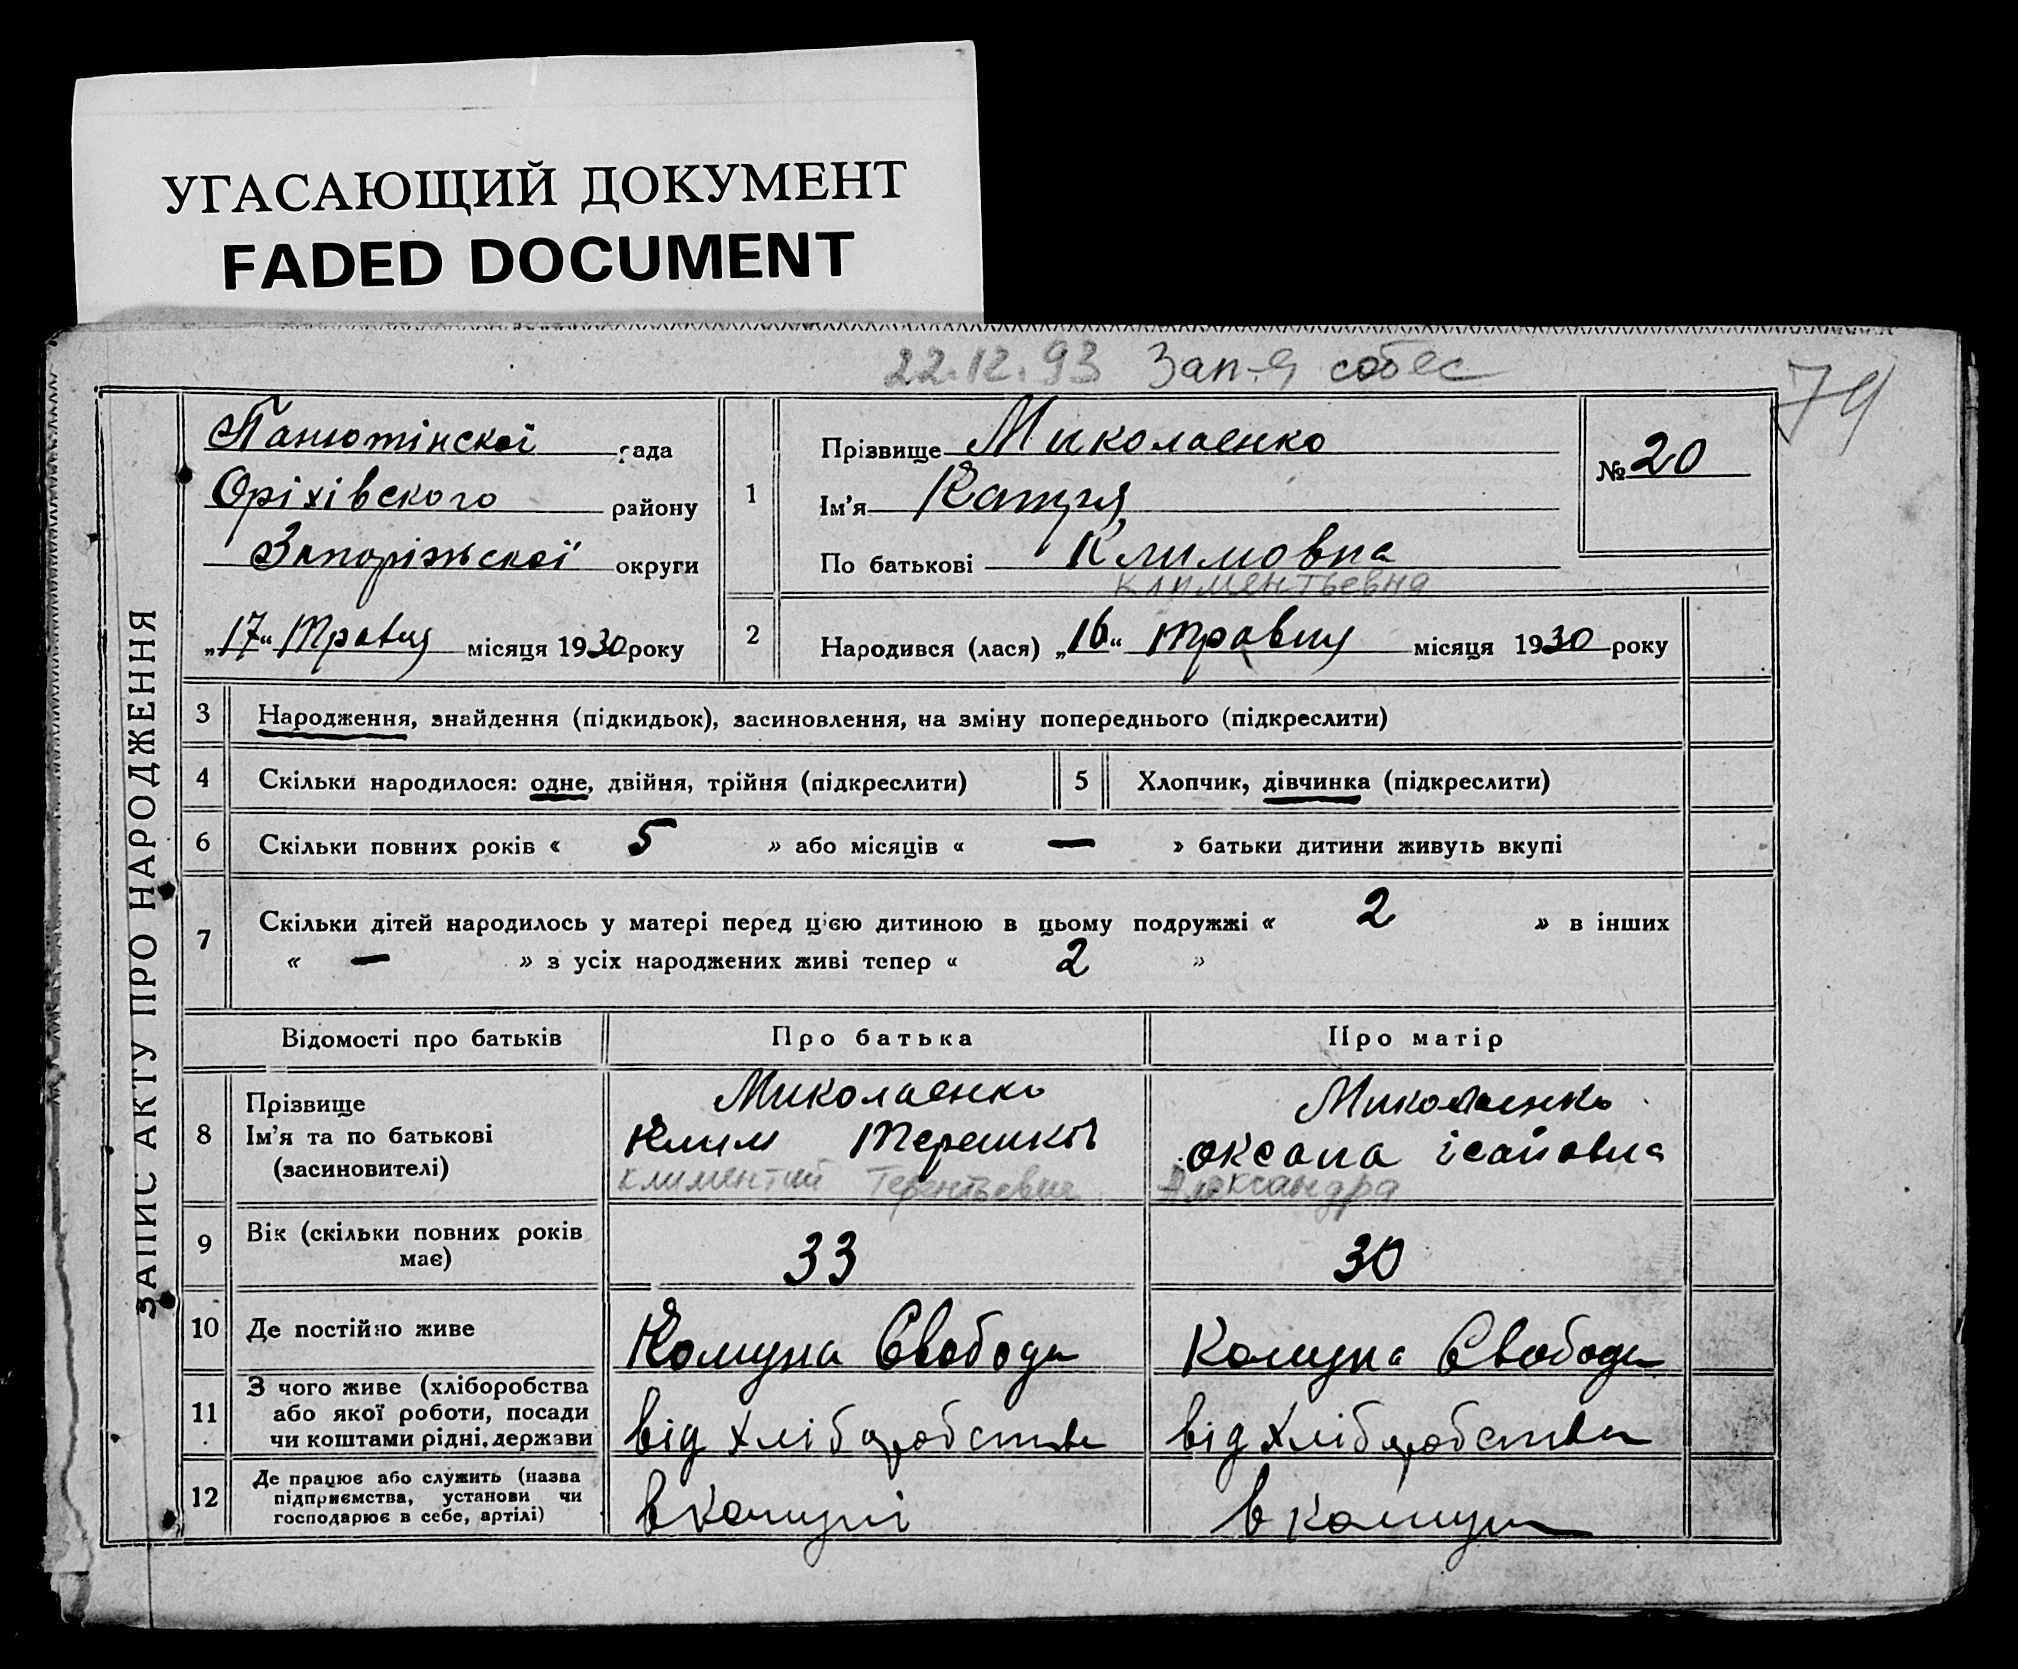 УГАСАЮЩИЙ ДОКУМЕНТ
FADED DOCUMENT
22.12.93 Зап-я собес
74
ЗАПИС АКТУ ПРО НАРОДЖЕННЯ
Панютінскої рада
Оріхівского району
Запоріжскої округи
„17“ Травня місяця 1930 року
1
Прізвище Миколаенко
Ім'я Катря
По батькові Климовна
Климентьевна
№ 20
2
Народився (лася) „16“ травня місяця 1930 року
3 Народження, знайдення (підкидьок), засиновлення, на зміну попереднього (підкреслити)
4 Скільки народилося: одне, двійня, трійня (підкреслити) 5 Хлопчик, дівчинка (підкреслити)
6 Скільки повних років « 5 » або місяців « — » батьки дитини живуть вкупі
7 Скільки дітей народилось у матері перед цією дитиною в цьому подружжі « 2 » в інших
« — » з усіх народжених живі тепер « 2 »
Відомості про батьків Про батька Про матір
8 Прізвище
Ім'я та по батькові
(засиновителі)
Миколаенко
Клим Терешков
Климентий Терентьевич
Миколаенко
Оксана ісайовна
Александра
9 Вік (скільки повних років
має)
33 30
10 Де постійно живе Комуна Свобода Комуна Свобода
11 З чого живе (хліборобства
або якої роботи, посади
чи коштами рідні, держави
від хліборобства від хліборобства
12 Де працює або служить (назва
підприємства, установи чи
господарює в себе, артілі)
в комуні в комуні